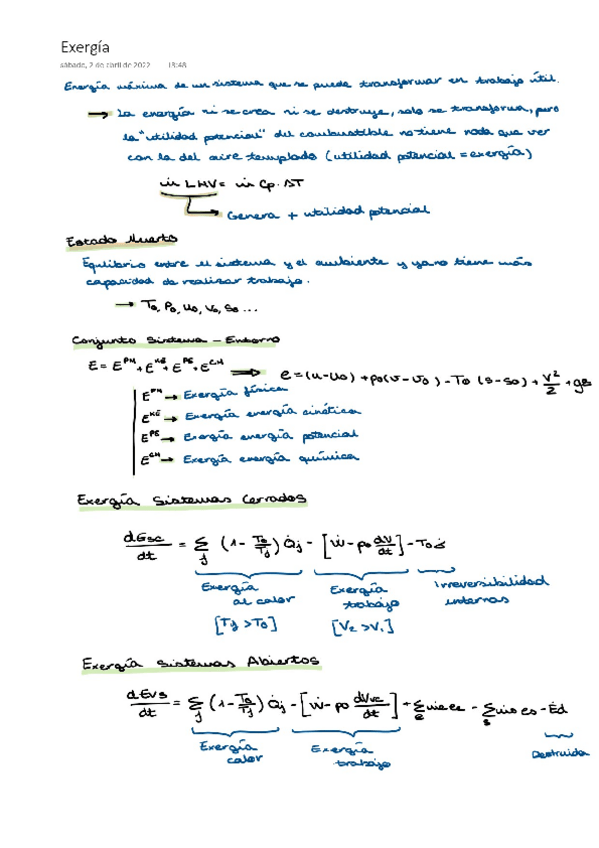 Exergía
sábado, 2 de abril de 2022 13:48
Energía máxima de un sistema que se puede transformar en trabajo útil.
→ La energía ni se crea ni se destruye, solo se transforma, pero
la "utilidad potencial" del combustible no tiene nada que ver
con la del aire templado (utilidad potencial = exergía)
ṁ LHV = ṁ Cp · ΔT
Genera + utilidad potencial
Estado Muerto
Equilibrio entre el sistema y el ambiente y ya no tiene más
capacidad de realizar trabajo.
→ T₀, P₀, u₀, v₀, s₀ ...
Conjunto Sistema - Entorno
E = E^PH + E^KE + E^PE + E^CH ⟹ e = (u-u₀) + p₀(v-v₀) - T₀ (s-s₀) + V²/2 + gz
E^PH → Exergía física
E^KE → Exergía energía cinética
E^PE → Exergía energía potencial
E^CH → Exergía energía química
Exergía Sistemas Cerrados
dEsc/dt = Σj (1 - T₀/Tj) Q̇j - [Ẇ - p₀ dV/dt] - T₀ σ̇
Exergía al calor
Exergía trabajo
Irreversibilidad internas
[Tj > T₀] [V₂ > V₁]
Exergía Sistemas Abiertos
dEvs/dt = Σj (1 - T₀/Tj) Q̇j - [Ẇ - p₀ dVvc/dt] + Σe ṁe ee - Σs ṁs es - Ėd
Exergía calor
Exergía trabajo
Destruida